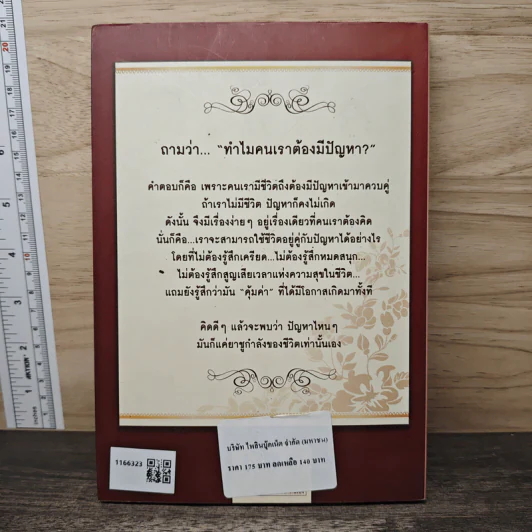 ถามว่า... “ทำไมคนเราต้องมีปัญหา?”
คำตอบก็คือ เพราะคนเรามีชีวิตถึงต้องมีปัญหาเข้ามาควบคู่
ถ้าเราไม่มีชีวิต ปัญหาก็คงไม่เกิด
ดังนั้น จึงมีเรื่องง่ายๆ อยู่เรื่องเดียวที่คนเราต้องคิด
นั่นก็คือ...เราจะสามารถใช้ชีวิตอยู่คู่กับปัญหาได้อย่างไร
โดยที่ไม่ต้องรู้สึกเครียด...ไม่ต้องรู้สึกหมดสนุก...
ไม่ต้องรู้สึกสูญเสียเวลาแห่งความสุขในชีวิต...
แถมยังรู้สึกว่ามัน “คุ้มค่า” ที่ได้มีโอกาสเกิดมาทั้งที
คิดดีๆ แล้วจะพบว่า ปัญหาไหนๆ
มันก็แค่ยาชูกำลังของชีวิตเท่านั้นเอง
บริษัท ไพลินบุ๊คเน็ต จำกัด (มหาชน)
ราคา 175 บาท ลดเหลือ 140 บาท
1166323
20
19
18
17
16
15
5
2
1